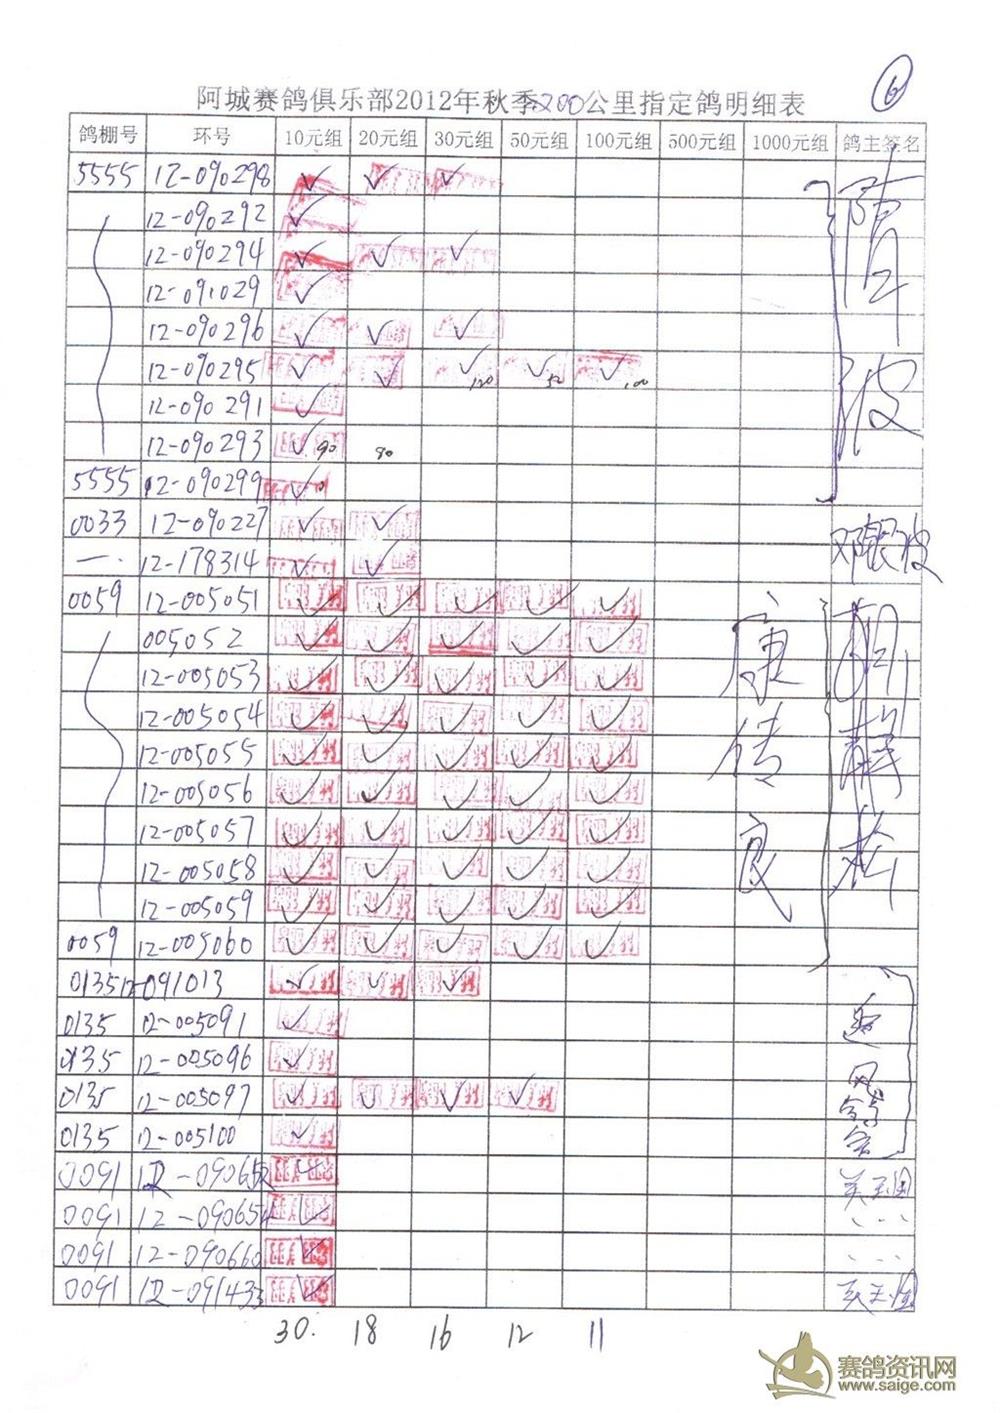 6
阿城赛鸽俱乐部2012年秋季200公里指定鸽明细表
鸽棚号 环号 10元组 20元组 30元组 50元组 100元组 500元组 1000元组 鸽主签名
5555 12-090298 ✓ ✓ ✓
12-090292 ✓
12-090294 ✓ ✓ ✓
12-091029 ✓
12-090296 ✓ ✓ ✓
12-090295 ✓ ✓ ✓120 ✓50 ✓100
12-090291 ✓
12-090293 ✓90 80
5555 12-090299 ✓
0033 12-090227 ✓ ✓
12-178314 ✓ ✓
0059 12-005051 ✓ ✓ ✓ ✓ ✓
005052 ✓ ✓ ✓ ✓ ✓ 康传良
12-005053 ✓ ✓ ✓ ✓ ✓
12-005054 ✓ ✓ ✓ ✓ ✓
12-005055 ✓ ✓ ✓ ✓ ✓
12-005056 ✓ ✓ ✓ ✓ ✓
12-005057 ✓ ✓ ✓ ✓ ✓
12-005058 ✓ ✓ ✓ ✓ ✓
12-005059 ✓ ✓ ✓ ✓ ✓
0059 12-005060 ✓ ✓ ✓ ✓ ✓
0135 12-091013 ✓ ✓ ✓
0135 12-005091 ✓
0135 12-005096 ✓
0135 12-005097 ✓ ✓ ✓ ✓
0135 12-005100 ✓
0091 12-090652 ✓
0091 12-090654 ✓
0091 12-090660 ✓
0091 12-091433 ✓
30. 18 16 12 11
赛鸽资讯网
www.saige.com